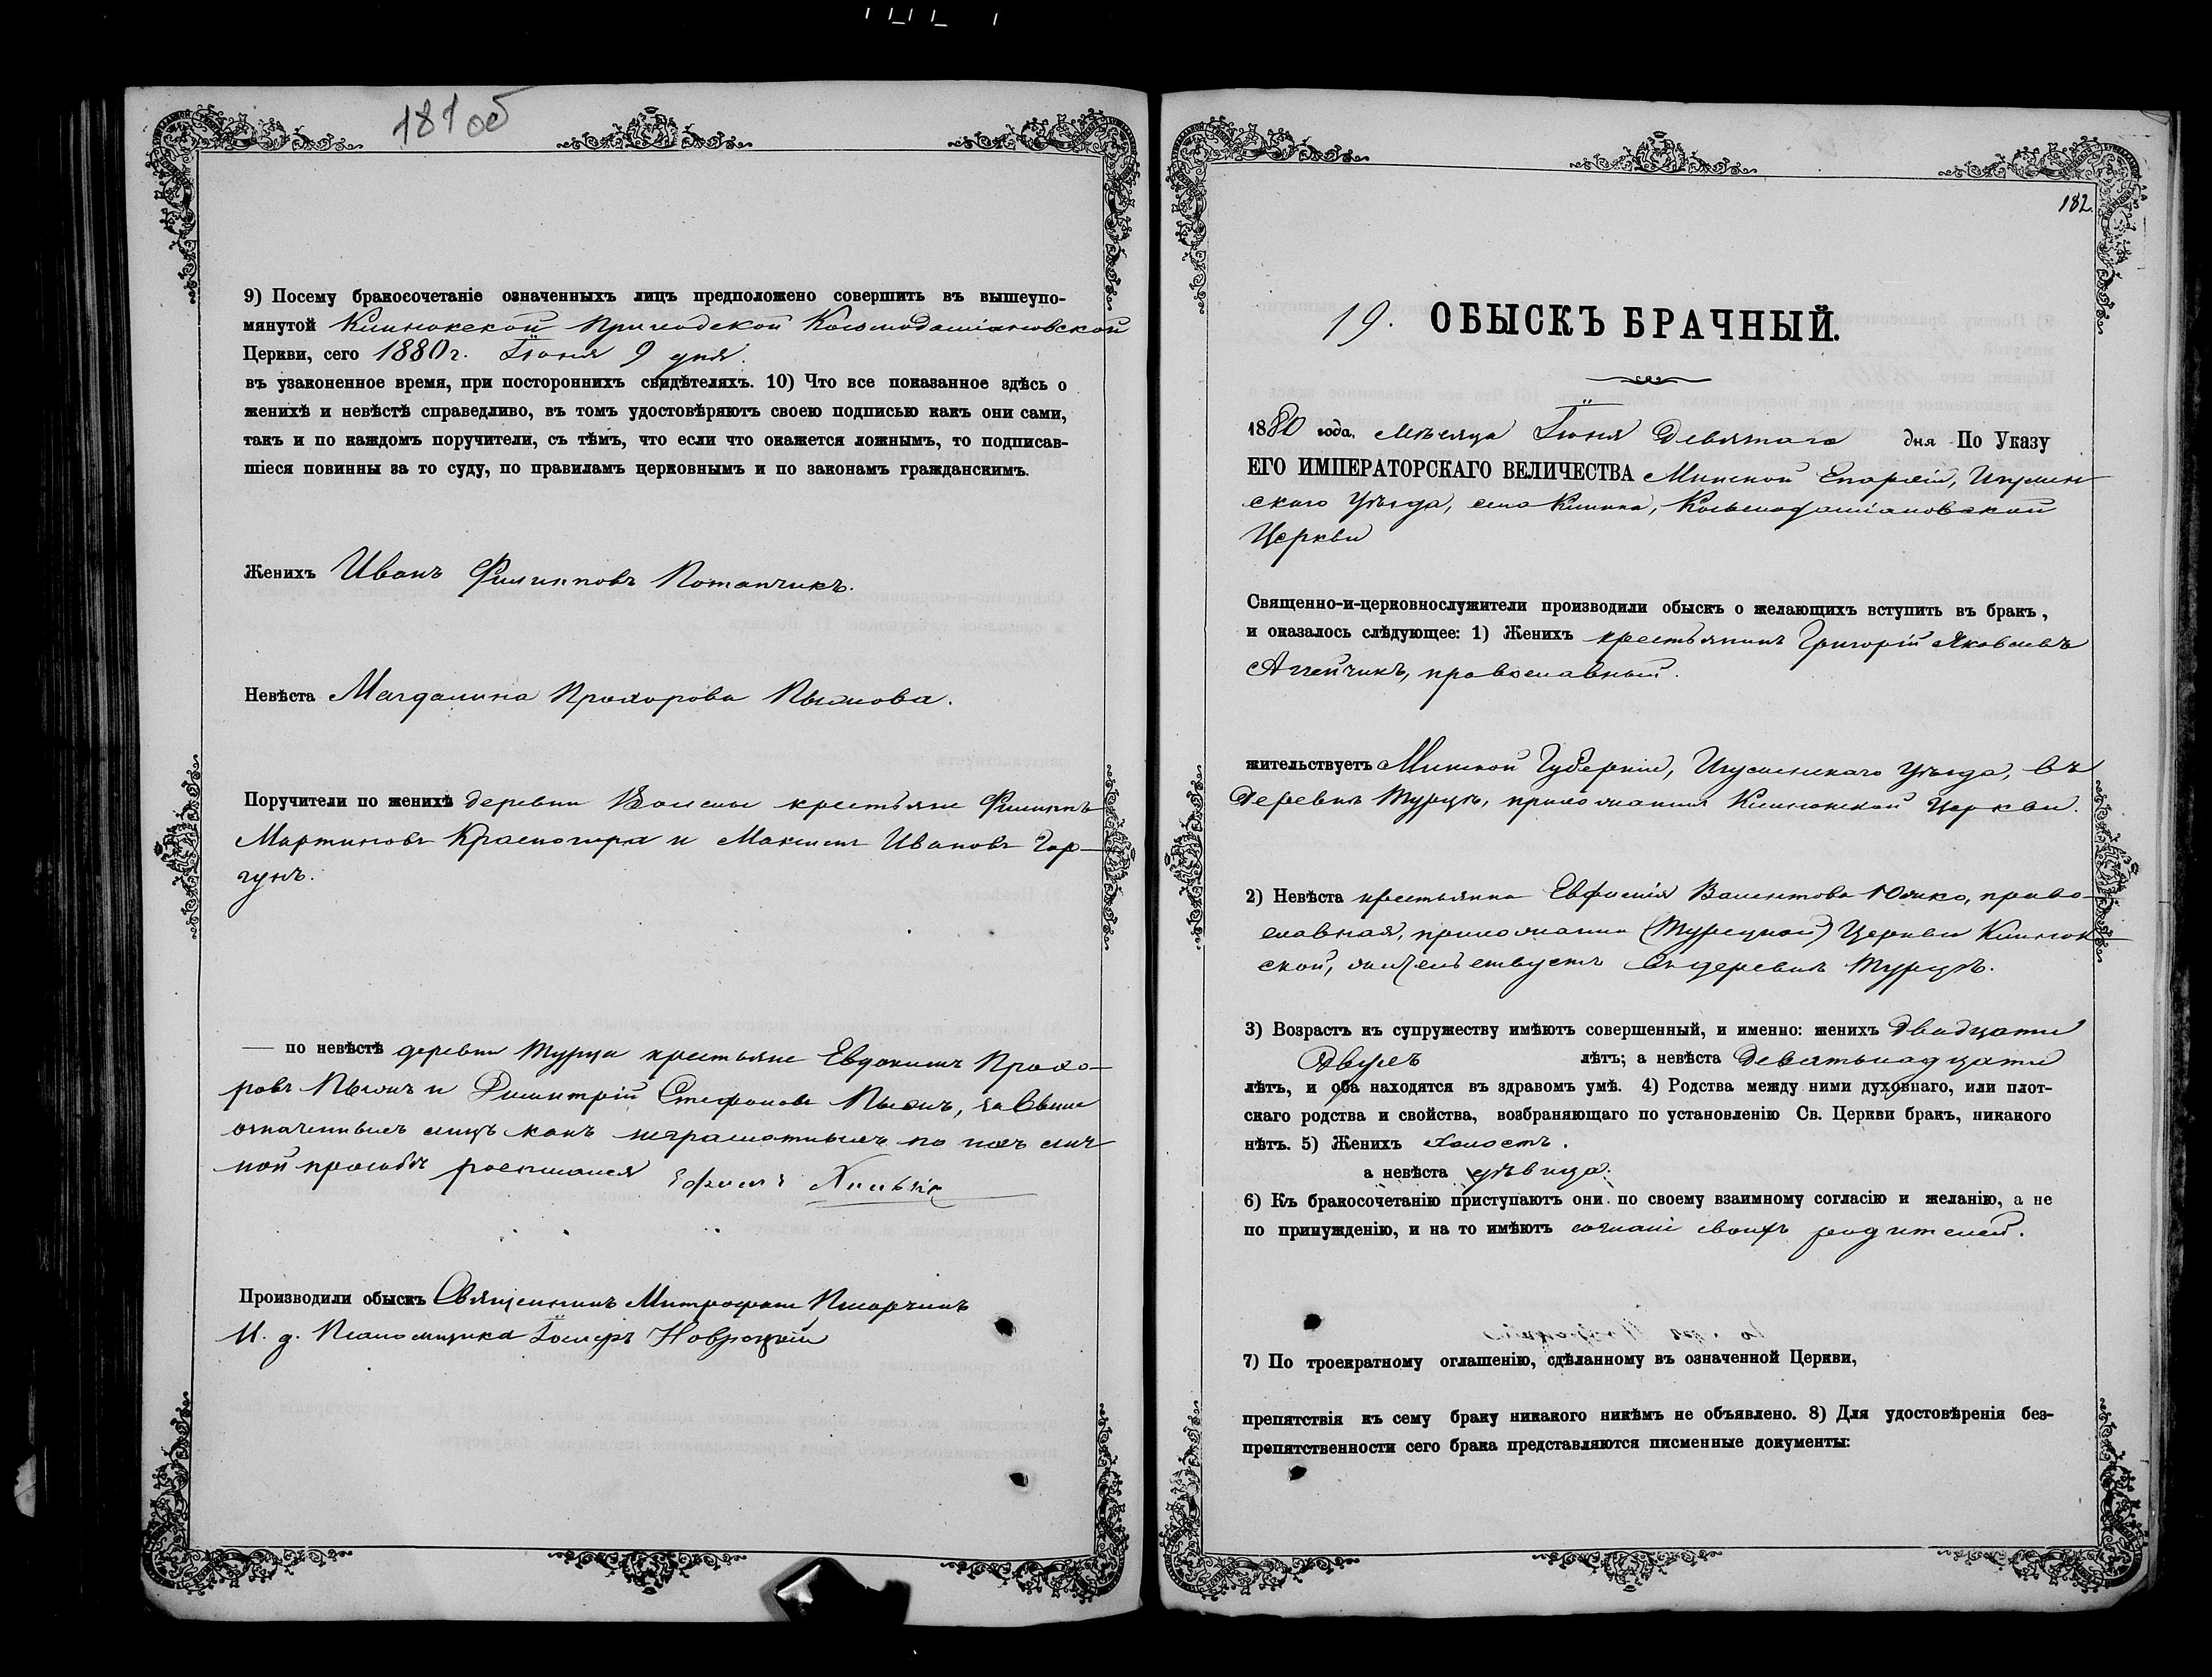 181 об
9) Посему бракосочетаніе означенныхъ лицъ предположено совершить въ вышеупо-
мянутой Клинокской Приходской Космодаміановской
Церкви, сего 1880 г. Іюня 9 дня.
въ узаконенное время, при постороннихъ свидѣтеляхъ. 10) Что все показанное здѣсь о
женихѣ и невѣстѣ справедливо, въ томъ удостовѣряютъ своею подписью какъ они сами,
такъ и по каждомъ поручители, съ тѣмъ, что если что окажется ложнымъ, то подписав-
шіеся повинны за то суду, по правиламъ церковнымъ и по законамъ гражданскимъ.
Женихъ Иванъ Филипповъ Потапчикъ.
Невѣста Магдалина Прохорова
Поручители по женихѣ деревни крестьяне Филиппъ
Мартиновъ и Максимъ Ивановъ Гор-
гунъ.
— по невѣстѣ деревни Турца крестьяне Евдокимъ Прохо-
ровъ и Димитрій Стефановъ за выше
означенныхъ лицъ какъ неграмотныхъ по ихъ лич-
ной прозьбѣ росписался
Производили обыскъ Священникъ Митрофанъ
И. д. Псаломщика
182.
19. ОБЫСКЪ БРАЧНЫЙ.
1880 года, Мѣсяца Іюня Девятаго дня По Указу
ЕГО ИМПЕРАТОРСКАГО ВЕЛИЧЕСТВА Минской Епархіи, Игумен-
скаго Уѣзда, села Клинка, Космодаміановской
Церкви
Священно-и-церковнослужители производили обыскъ о желающихъ вступить въ бракъ,
и оказалось слѣдующее: 1) Женихъ крестьянинъ Григорій Яковлевъ
Агейчикъ, православный.
жительствуетъ Минской Губерніи, Игуменскаго Уѣзда, въ
деревнѣ Турцѣ, прихожанинъ Клинокской Церкви.
2) Невѣста крестьянка Евфимія Валентова Юшко, право-
славная, прихожанка (Турецкой) Церкви Клинок-
ской, жительствуетъ въ деревнѣ Турцѣ.
3) Возрастъ къ супружеству имѣютъ совершенный, и именно: женихъ двадцати
двухъ лѣтъ; а невѣста девятьнадцати
лѣтъ, и оба находятся въ здравомъ умѣ. 4) Родства между ними духовнаго, или плот-
скаго родства и свойства, возбраняющаго по установленію Св. Церкви бракъ, никакого
нѣтъ. 5) Женихъ холостъ.
а невѣста дѣвица.
6) Къ бракосочетанію приступаютъ они по своему взаимному согласію и желанію, а не
по принужденію, и на то имѣютъ своихъ родителей.
7) По троекратному оглашенію, сдѣланному въ означенной Церкви,
препятствія къ сему браку никакого никѣмъ не объявлено. 8) Для удостовѣренія без-
препятственности сего брака представляются писменные документы: